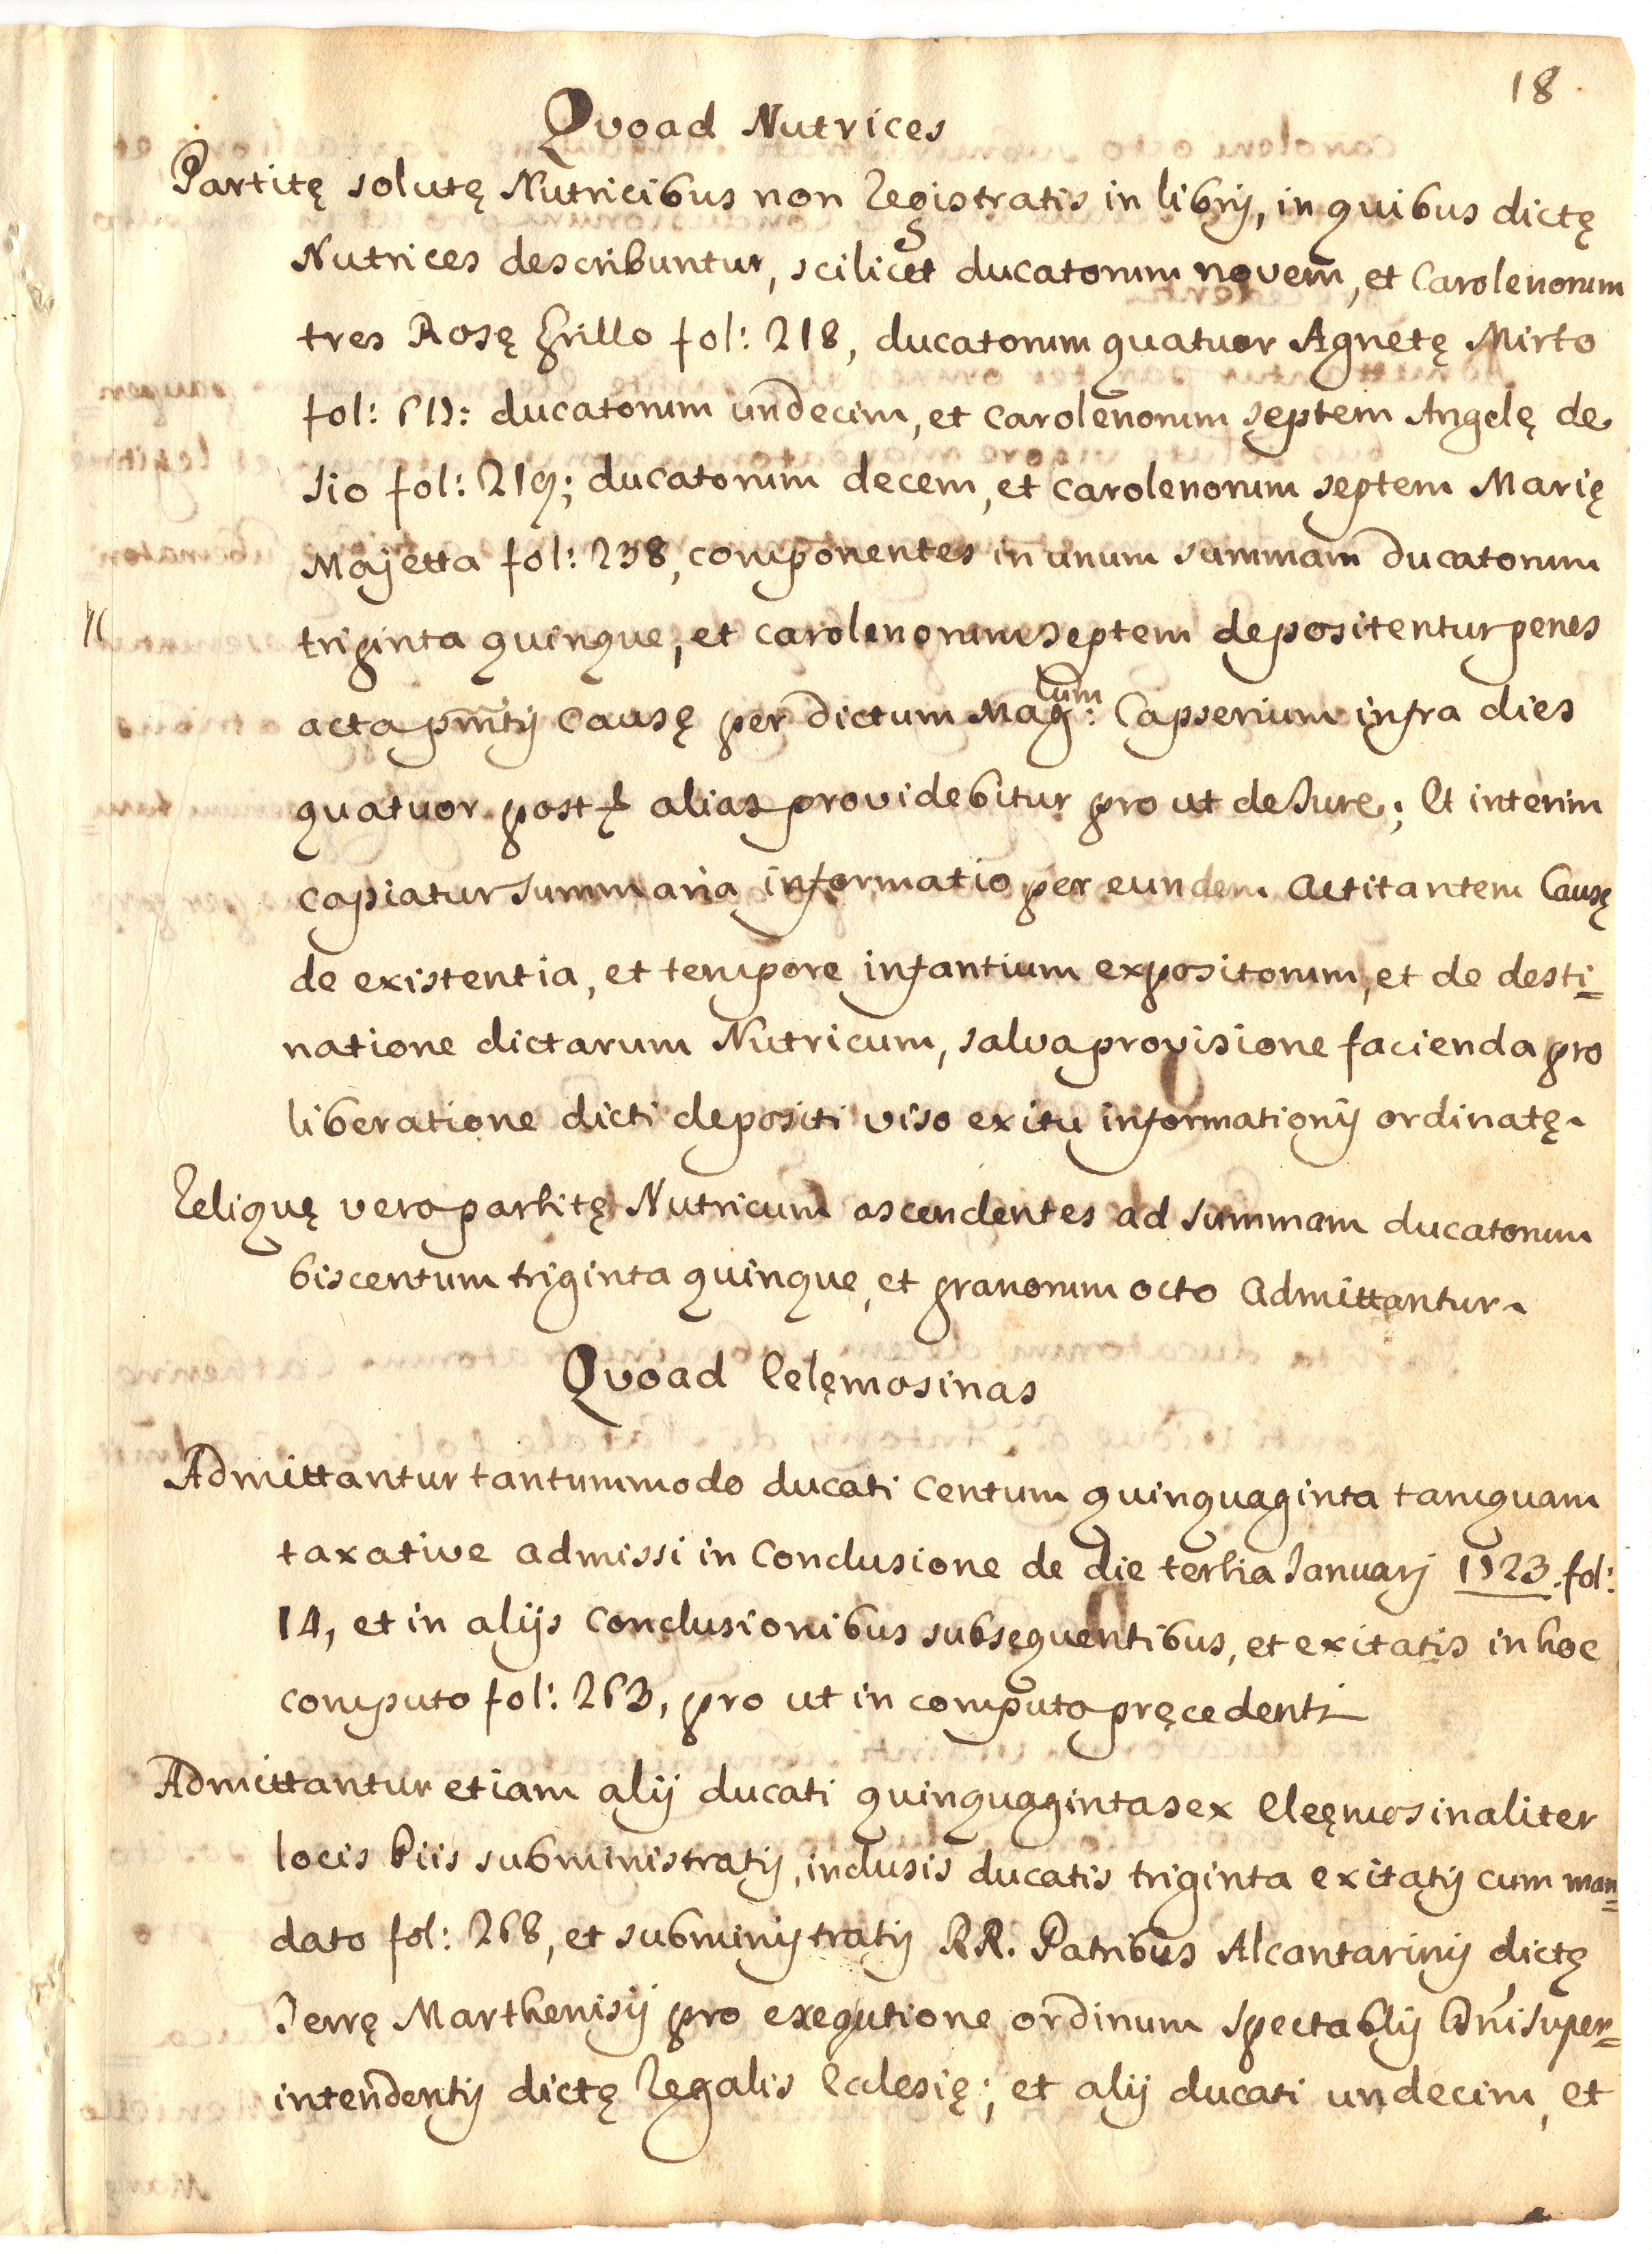 18
Quoad Nutrices
Partitę solutę Nutricibus non Registratis in librij, in quibus dictę
Nutrices describuntur, scilicet ducatorum novem, et Carolenorum
tres Rosę Grillo fol: 218, ducatorum quatuor Agnetę Mirto
fol: 617: ducatorum undecim, et carolenorum septem Angelę de
Sio fol: 219; ducatorum decem, et carolenorum septem Marię
Majetta fol: 238, componentes in unum summam ducatorum
triginta quinque, et carolenorum septem depositentur penes
acta pñtij causę per dictum Mag:cum Capserium infra dies
quatuor post alias providebitur pro ut de Jure; Et interim
capiatur summaria informatio per eundem actitantem Causę
de existentia, et tempore infantium expositorum, et de desti=
natione dictarum Nutricum, salva provisione facienda pro
liberatione dicti depositi viso exitu informationij ordinatę.
Reliquę vero partitę Nutricum ascendentes ad summam ducatorum
biscentum triginta quinque, et granorum octo admittantur.
Quoad Eelęmosinas
Admittantur tantummodo ducati centum quinquaginta tamquam
taxative admissi in Conclusione de die tertia Januarj 1723. fol:
14, et in alijs conclusionibus subsequentibus, et exitatis in hoc
computo fol: 263, pro ut in computo pręcedenti
Admittantur etiam alij ducati quinquaginta sex eleęmosinaliter
locis Piis subministratij, inclusis ducatis triginta exitatij cum man=
dato fol: 268, et subminijtratij RR. Patribus Alcantarinij dictę
Terrę Marthenisij pro exequtione ordinum spectablij Dñi super=
intendentij dictę Regalis Eclesię; et alij ducati undecim, et